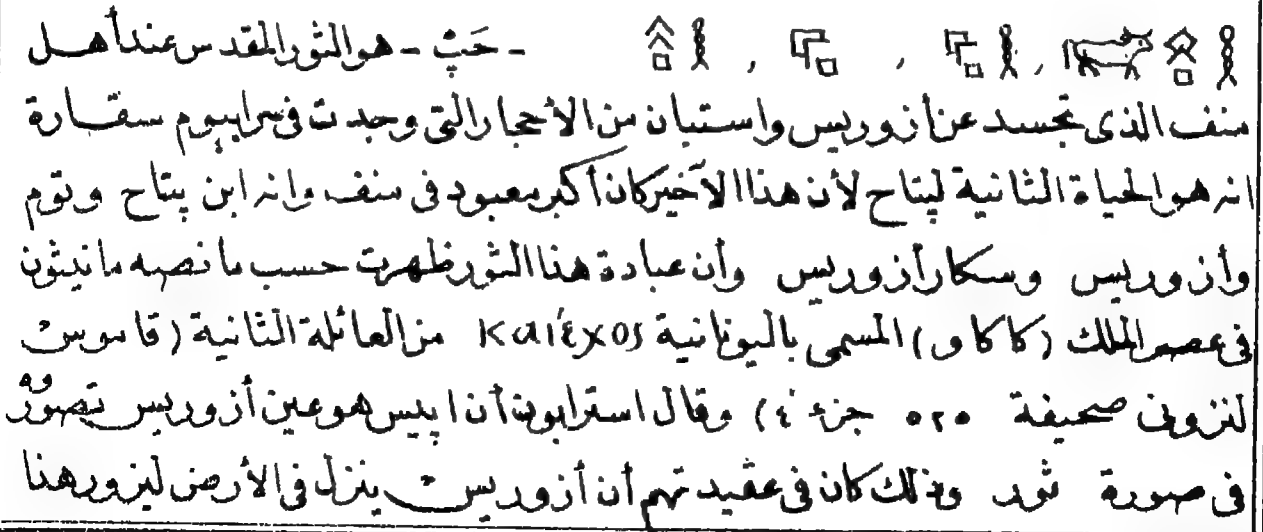 - حَپْ - هو الثور المقدس عند أهل
منف الذى تجسد عن أزوريس واستبان من الأحجار التى وجدت فى سرابيوم سقارة
انه هو الحياة الثانية لپتاح لأن هذا الآخير كان أكبر معبود فى منف وانه ابن پتاح وتوم
وأزوريس وسكار أزوريس وأن عبادة هذا الثور ظهرت حسب ما نصه مانيثون
فى عصر الملك (كاكاو) المسمى باليونانية Καιέχος من العائلة الثانية (قاموس
لنزونى صحيفة ٥٢٥ جزء ٤) وقال استرابون أن اپيس هو عين أزوريس تصوّروه
فى صورة ثور وذلك كان فى عقيدتهم أن أزوريس ينزل فى الأرض ليزور هنا